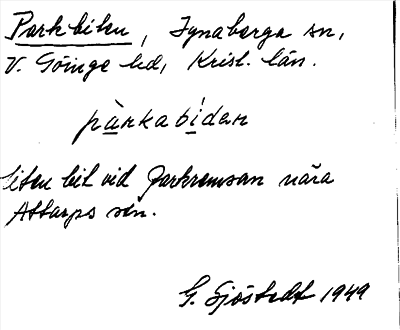 Parkbiten, Ignaberga sn,
V. Göinge hd, Krist. län.
pànkabidan
liten bit vid Parkremsan nära
Attarps stn.
G. Sjöstedt 1949